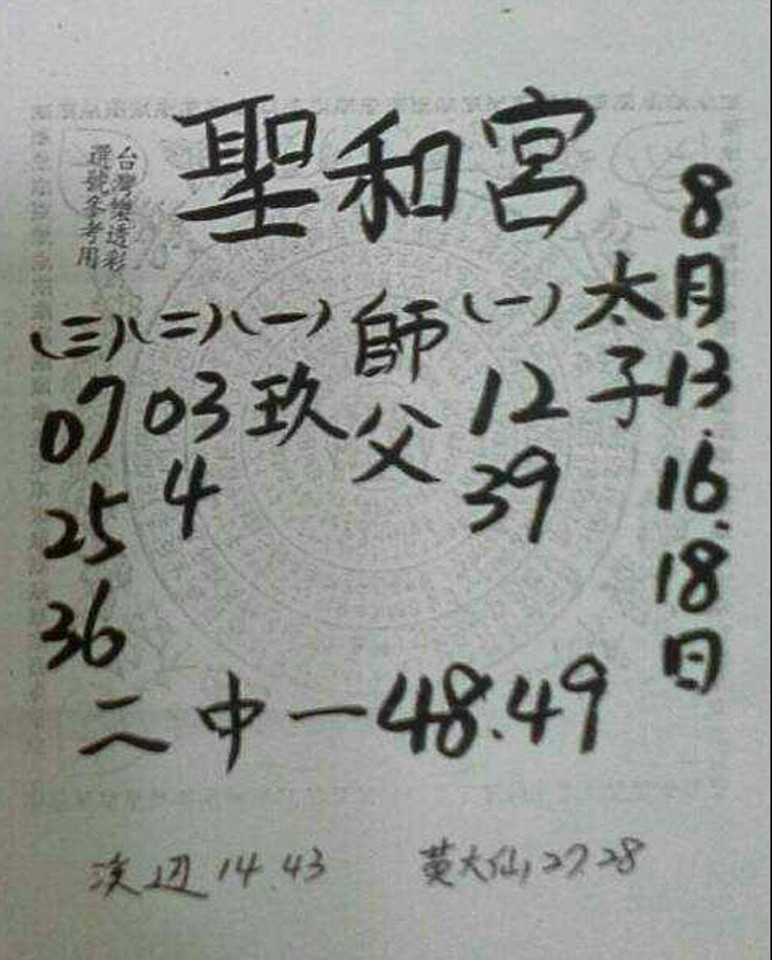 聖和宮
台灣樂透彩
選號參考用
8月13.16.18日
太子
(一)
12
39
師父
(一)
玖
(二)
03
4
(三)
07
25
36
二中一48.49
14.43
黃大仙27.28